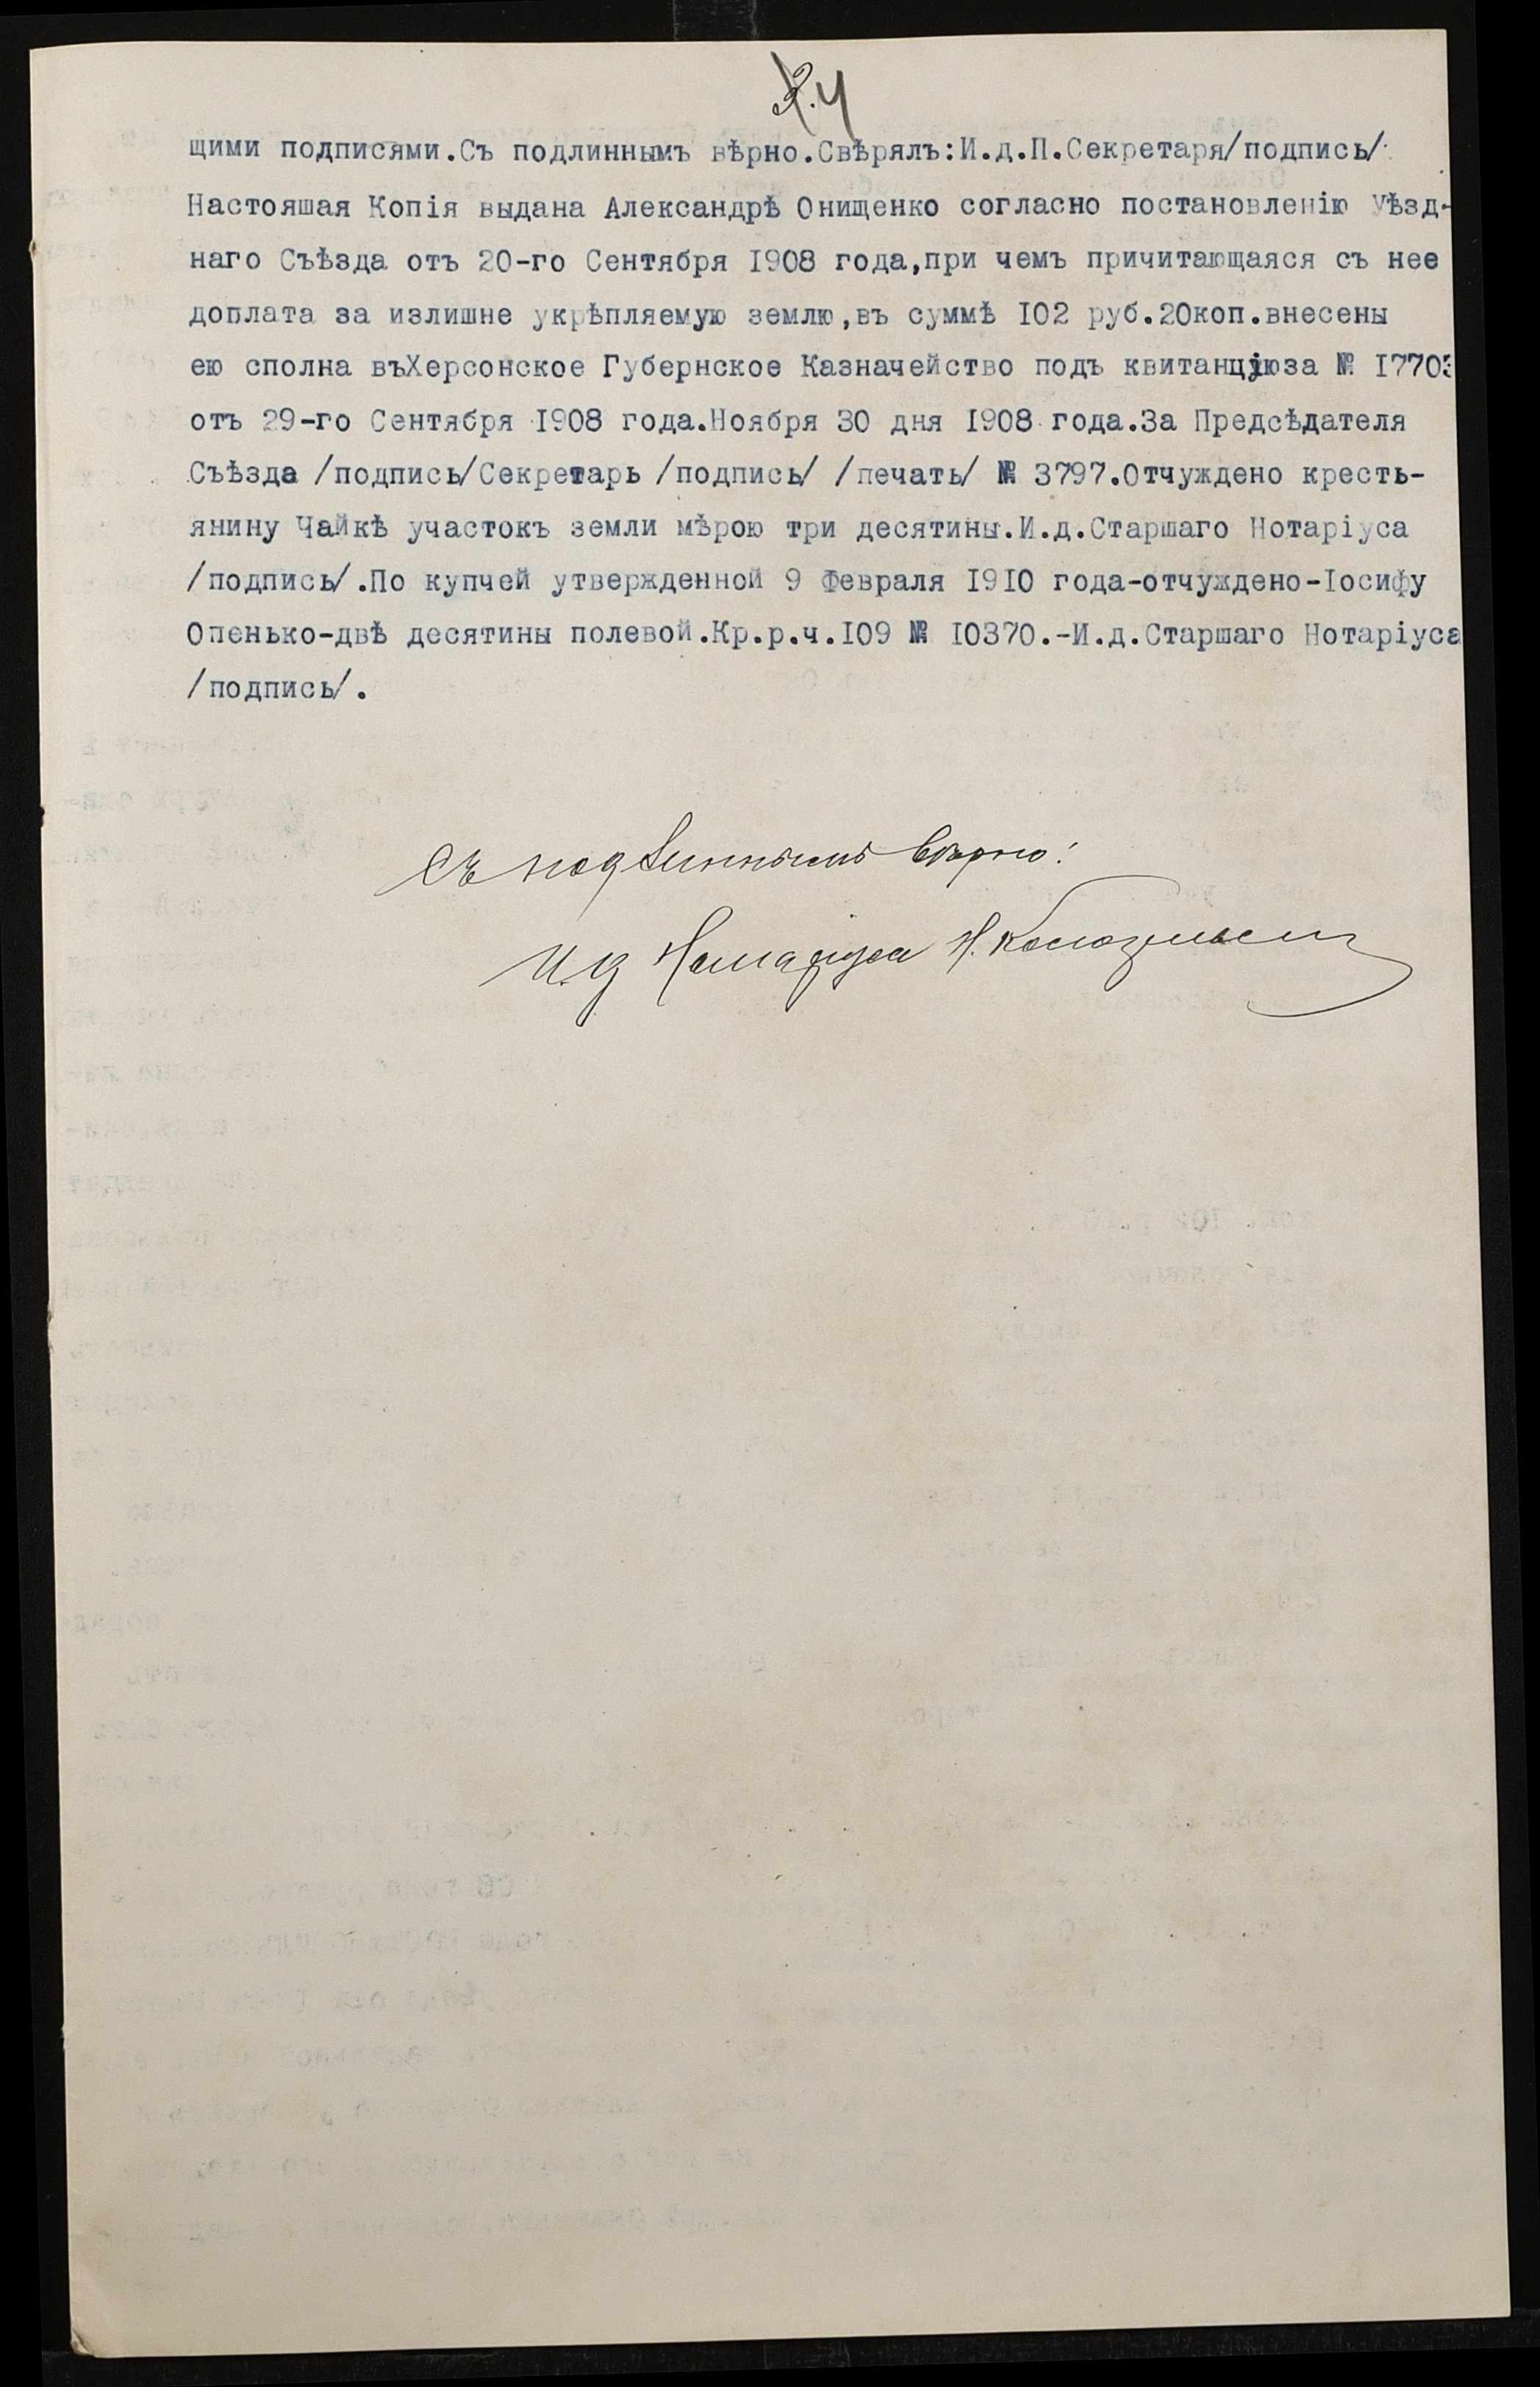 4
щими подписями.Съ подлиннымъ вѣрно.Свѣрялъ:И.д.П.Секретаря/подпись/.
Настояшая Копія выдана Александрѣ Онищенко согласно постановленію Уѣзд-
наго Съѣзда отъ 20-го Сентября I908 года,при чемъ причитающаяся съ нее
доплата за излишне укрѣпляемую землю,въ суммѣ I02 руб.20коп.внесены
ею сполна въХерсонское Губернское Казначейство подъ квитанціюза № I7703
отъ 29-го Сентября I908 года.Ноября 30 дня I908 года.За Предсѣдателя
Съѣзда /подпись/Секретарь /подпись/ /печать/ № 3797.Отчуждено кресть-
янину Чайкѣ участокъ земли мѣрою три десятины.И.д.Старшаго Нотаріуса
/подпись/.По купчей утвержденной 9 Февраля I9I0 года-отчуждено-Іосифу
Опенько-двѣ десятины полевой.Кр.р.ч.I09 № I0370.-И.д.Старшаго Нотаріуса
/подпись/.
Съ подлиннымъ вѣрно!
И.д Нотаріуса Н.